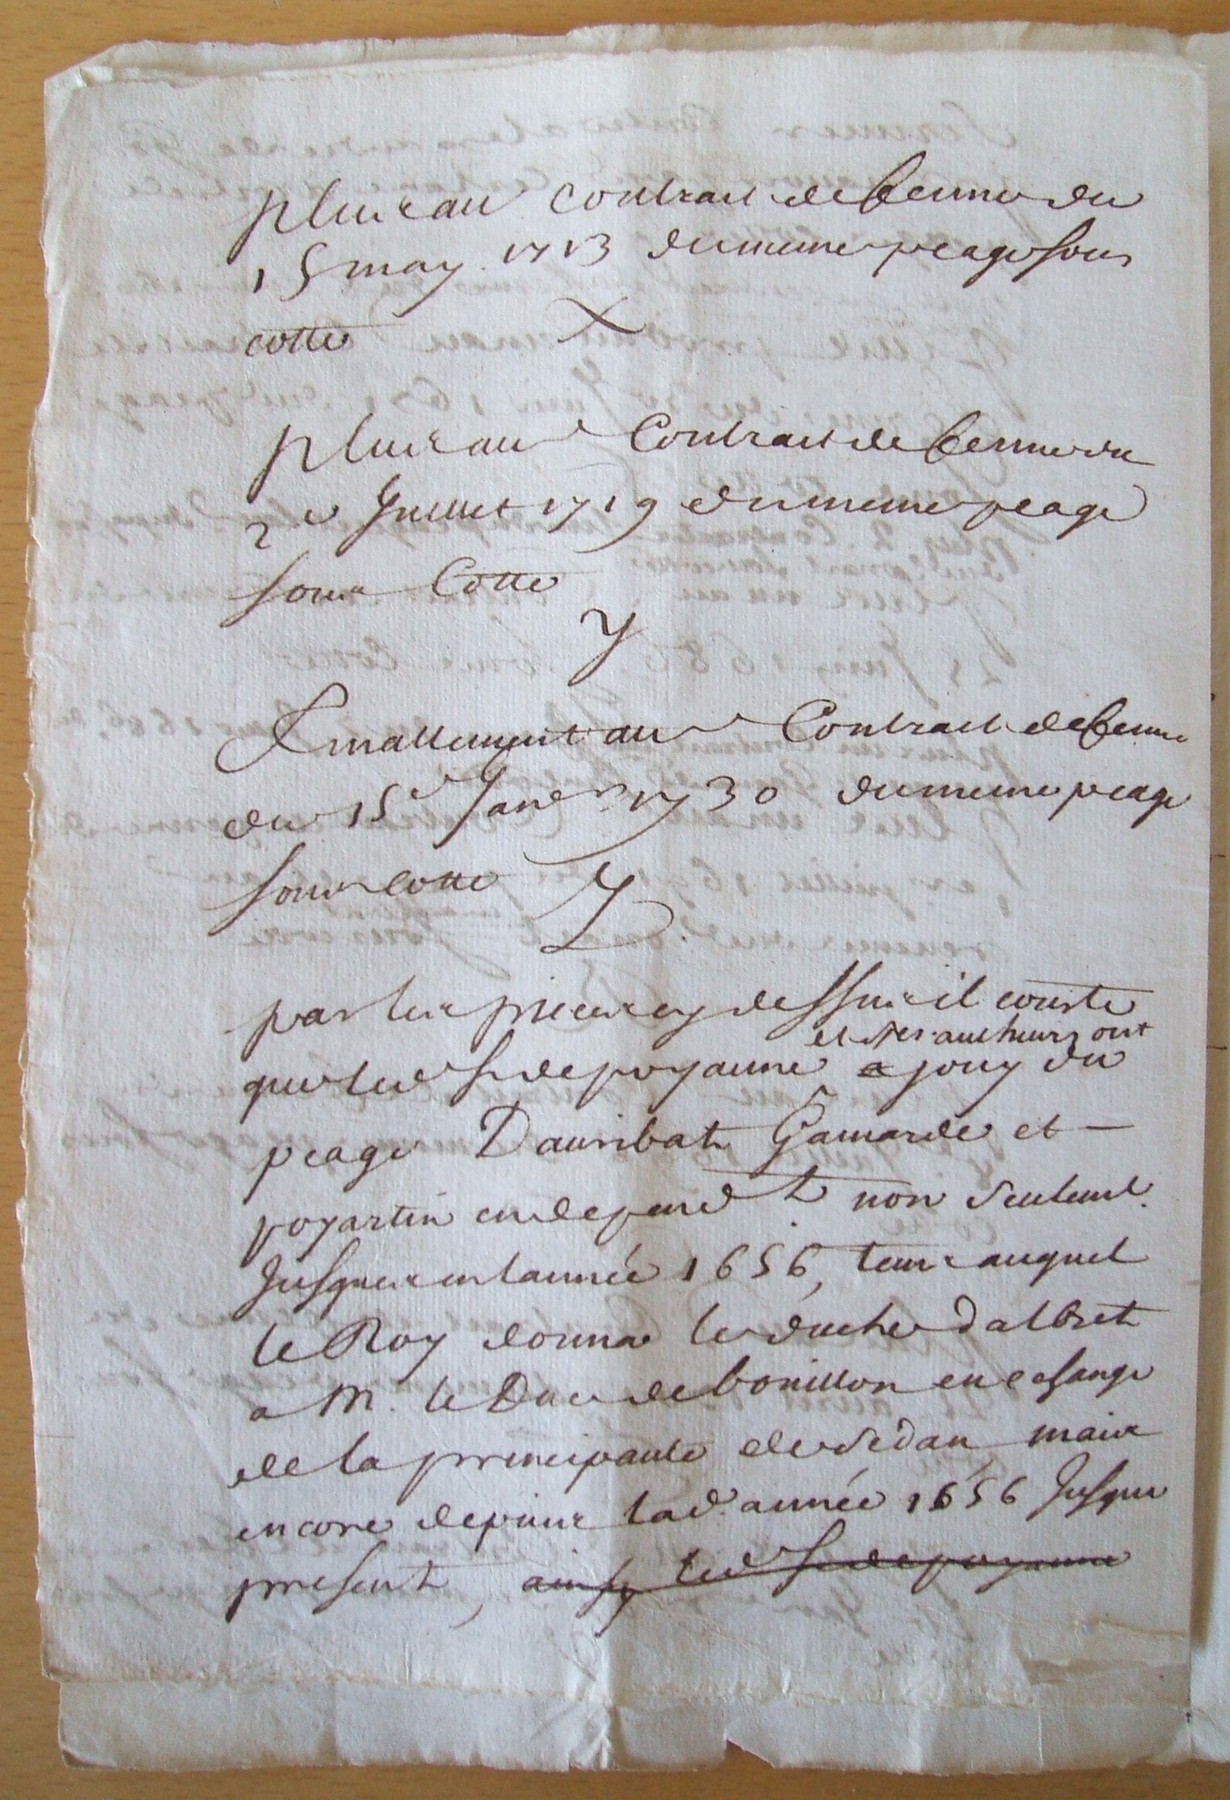 plus un contrat de ferme du
15 may 1713 du meme peage sous
cotte X
plus un Contrat de ferme du
2e Juillet 1719 du meme peage
sous Cotte
Y
Finallement un Contrat de ferme
du 15e Janer 1730 du meme peage
sous cotte Z
par les pieces cy dessus il conste
et ses autheurs ont
que led Sr de poyanne a jouy du
peage Dauribat Gamarde et
poyartin en depend t non seulemt
Jusques en lannée 1656, tems auquel
le Roy donna le duché dalbret
a M. le Duc de bouillon en echange
de la principauté de Sedan mais
encore depuis lad. année 1656 Jusqua
present, ainsy led Sr de poyanne